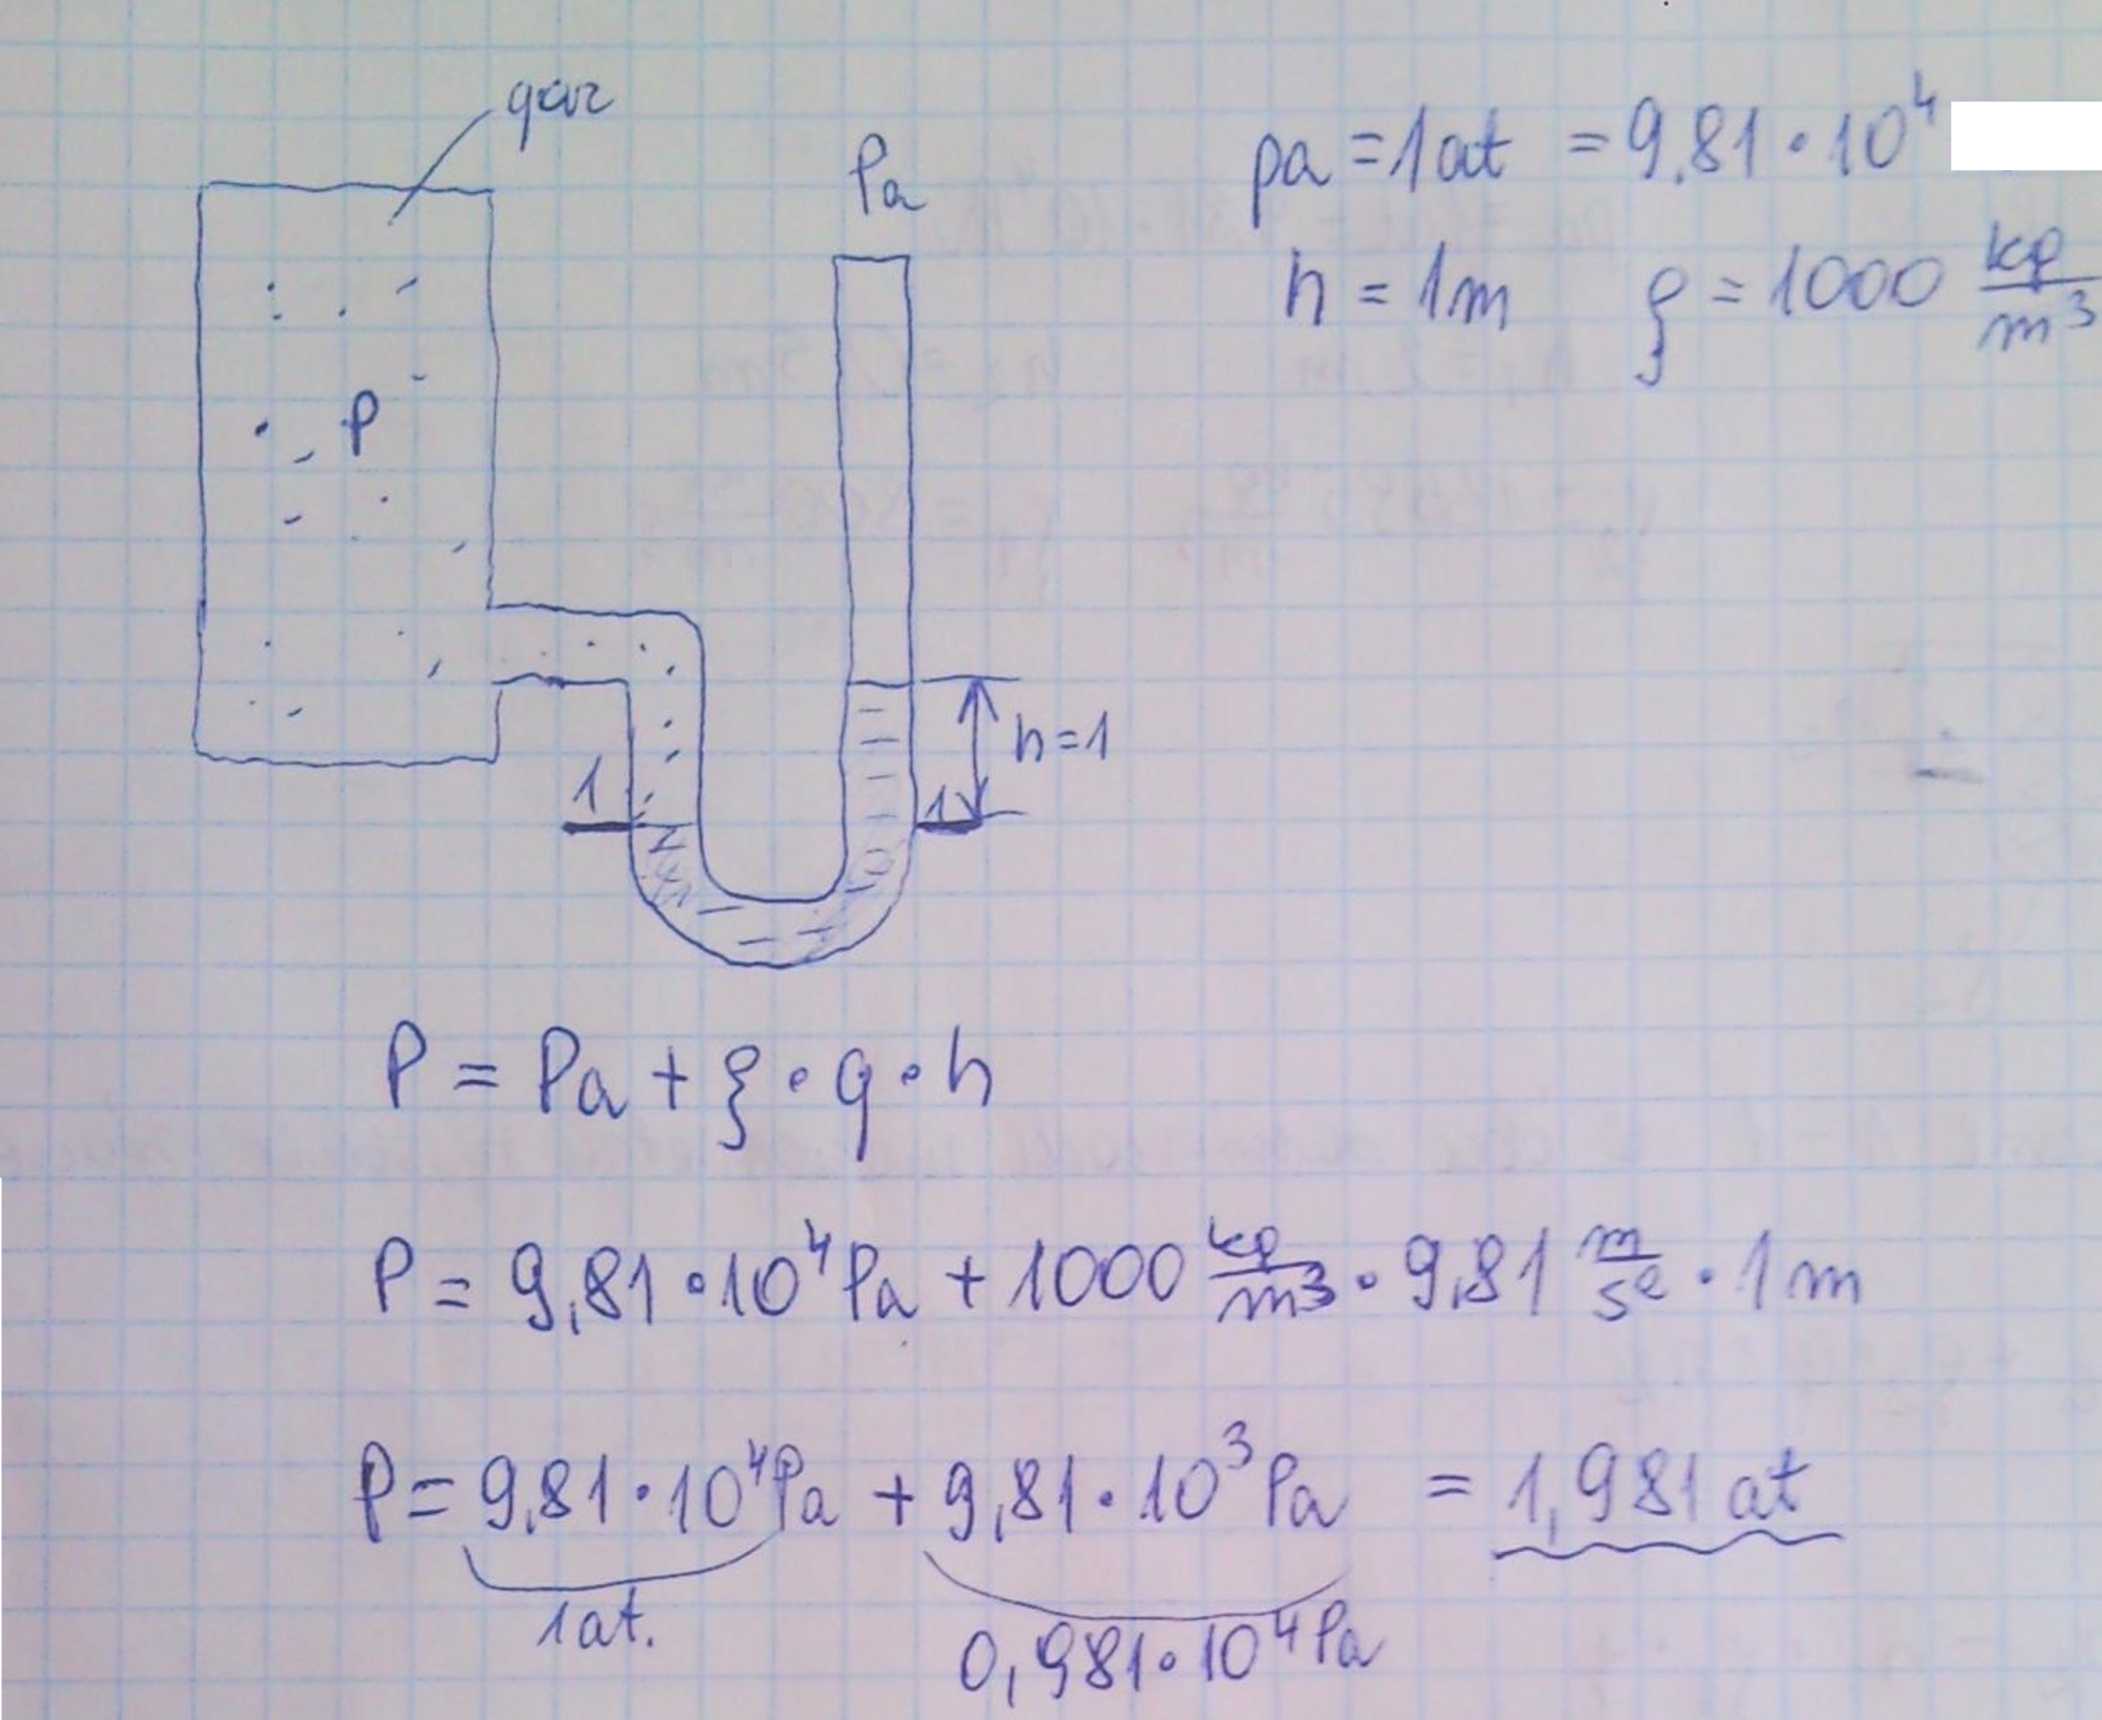 gaz
Pa
pa = 1at = 9,81 · 10⁴
h = 1m ρ = 1000 kg/m³
P
h=1
1 1
P = Pa + ρ · g · h
P = 9,81 · 10⁴ Pa + 1000 kg/m³ · 9,81 m/s² · 1m
P = 9,81 · 10⁴ Pa + 9,81 · 10³ Pa = 1,981 at
1at.
0,981 · 10⁴ Pa